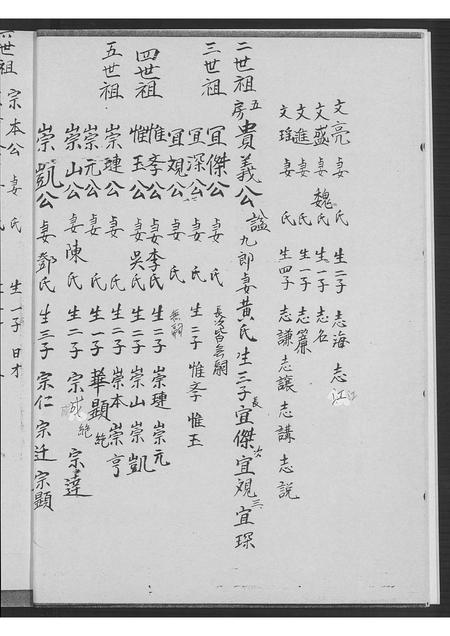 文亮 妻 氏 生二子 志海 志江
文盛 妻 魏氏 生一子 志名
文進 妻 氏 生一子 志簾
文瑤 妻 氏 生四子 志謙 志讓 志講 志説
二世祖 五房 貴義公 諡九郎 妻黃氏 生三子 長宜傑 次宜覌 三宜琛
三世祖 宜傑公 妻 氏 長次皆無嗣
宜深公 妻 氏 生二子 惟孝 惟玉
宜覌公 妻 氏 無嗣
四世祖 惟孝公 妻李氏 生二子 崇璉 崇元
惟玉公 妻吳氏 生二子 崇山 崇凱
五世祖 崇璉公 妻 氏 生二子 崇本 崇亨
崇元公 妻 氏 生一子 華顯 絶
崇山公 妻陳氏 生二子 宗成 絶 宗達
崇凱公 妻鄧氏 生三子 宗仁 宗迁 宗顯
六世祖 宗本公 妻 氏 生一子 日才